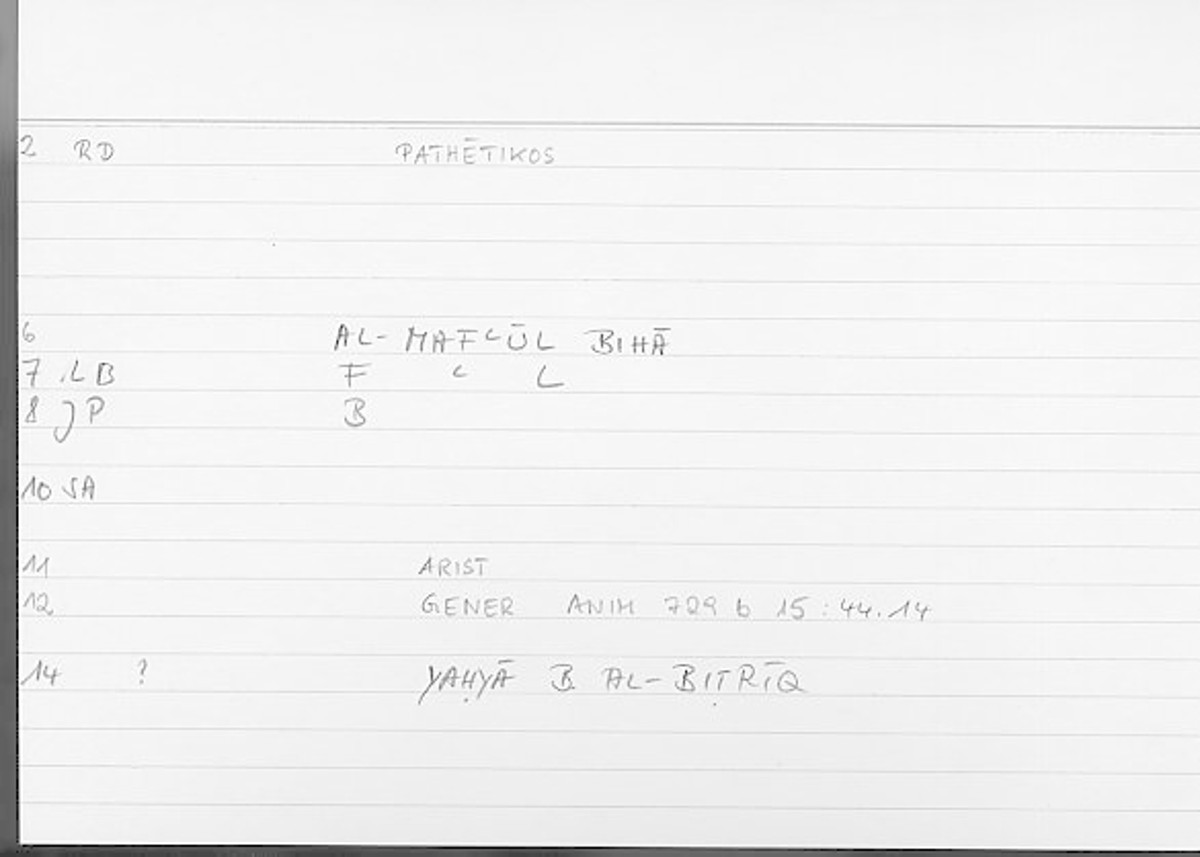 2 RD PATHĒTIKOS
6 AL- MAFʿŪL BIHĀ
7 LB F ʿ L
8 JP B
10 SA
11 ARIST
12 GENER ANIM 729 b 15 : 44.14
14 ? YAḤYĀ B AL-BIṬRĪQ